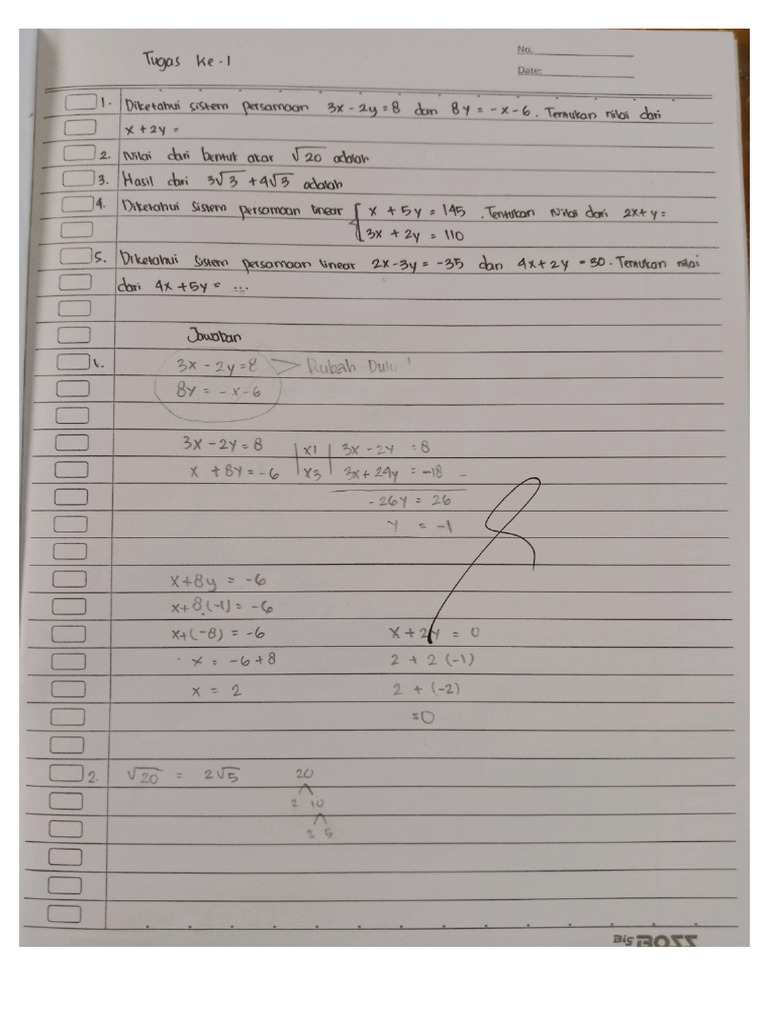 Tugas ke-1
No.
Date:
1. Diketahui sistem persamaan 3x - 2y = 8 dan 8y = -x - 6. Tentukan nilai dari
x + 2y =
2. Nilai dari bentuk akar √20 adalah
3. Hasil dari 3√3 + 4√3 adalah
4. Diketahui Sistem persamaan linear { x + 5y = 145 . Tentukan Nilai dari 2x+y =
3x + 2y = 110
5. Diketahui Sistem persamaan linear 2x - 3y = -35 dan 4x + 2y = 30. Tentukan nilai
dari 4x + 5y = ...
Jawaban
1. 3x - 2y = 8 > Rubah Dulu !
8y = -x - 6
3x - 2y = 8 | x1 | 3x - 2y = 8
x + 8y = -6 | x3 | 3x + 24y = -18 -
-26y = 26
y = -1
x + 8y = -6
x + 8.(-1) = -6
x + (-8) = -6 x + 2y = 0
x = -6 + 8 2 + 2 (-1)
x = 2 2 + (-2)
=0
2. √20 = 2√5 20
2 10
2 5
Big BOSS